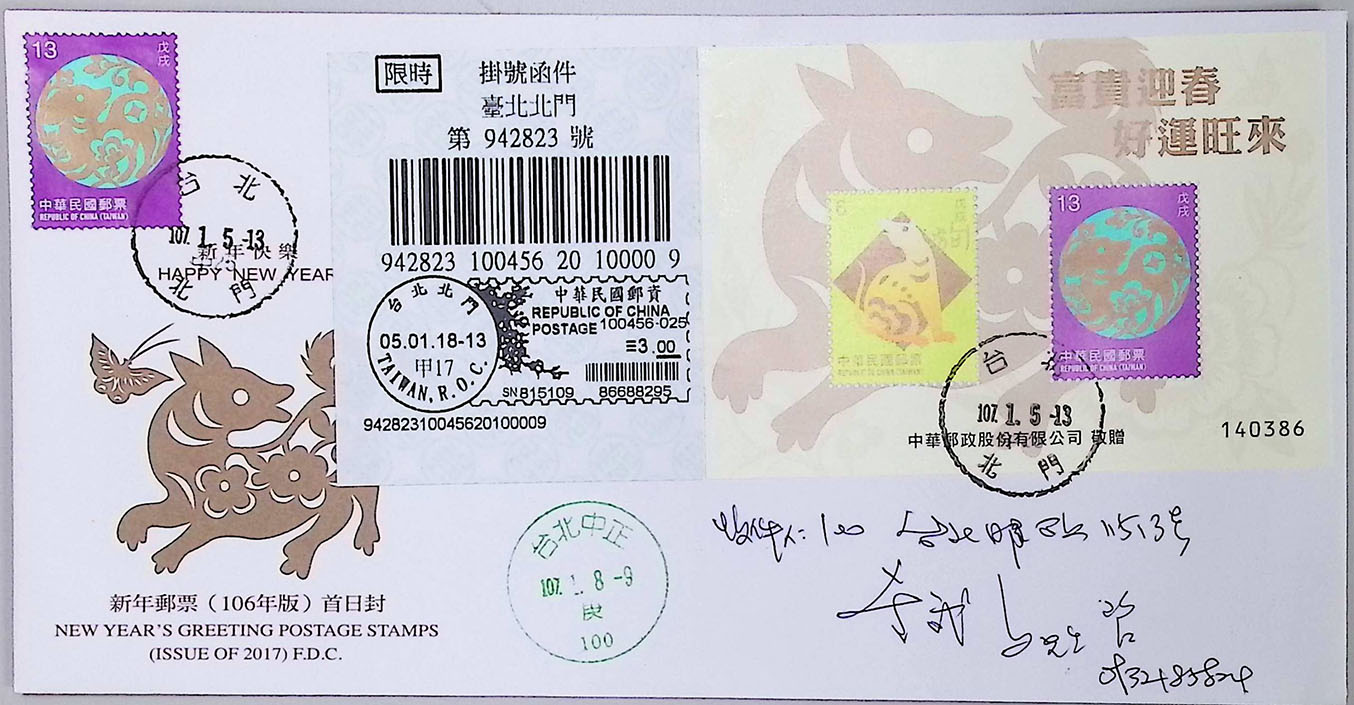 13
戊戌
中華民國郵票
REPUBLIC OF CHINA (TAIWAN)
台北
107. 1. 5 -13
北門
新年快樂
HAPPY NEW YEAR
新年郵票(106年版)首日封
NEW YEAR'S GREETING POSTAGE STAMPS
(ISSUE OF 2017) F.D.C.
限時
掛號函件
臺北北門
第 942823 號
942823 100456 20 10000 9
台北北門
05.01.18-13
甲17
TAIWAN, R.O.C.
中華民國郵資
REPUBLIC OF CHINA
POSTAGE 100456-025
≡3.00
SN815109 86688295
94282310045620100009
富貴迎春
好運旺來
戊戌
中華民國郵票
REPUBLIC OF CHINA (TAIWAN)
13
戊戌
中華民國郵票
REPUBLIC OF CHINA (TAIWAN)
台北
107. 1. 5 -13
北門
中華郵政股份有限公司 敬贈
140386
台北中正
107. 1. 8 -9
100
收件人: 100 台北郵政 1513号